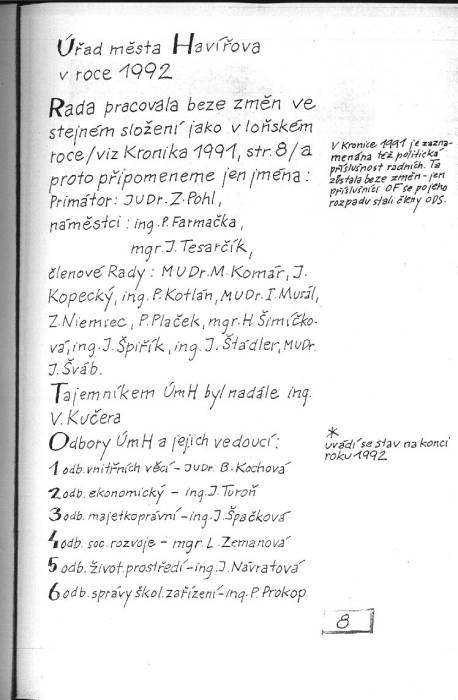 Úřad města Havířova
v roce 1992
Rada pracovala beze změn ve
stejném složení jako v loňském
roce/viz Kronika 1991, str. 8/a
proto připomeneme jen jména:
Primátor: JUDr. Z. Pohl,
náměstci: ing. P. Farmačka,
mgr. J. Tesarčík,
členové Rady: MUDr. M. Komár, J.
Kopecký, ing. P. Kotlán, MUDr. I. Murál,
Z. Niemiec, P. Plaček, mgr. H. Šimíčko-
vá, ing. J. Špiřík, ing. J. Štádler, MUDr.
J. Šváb.
Tajemníkem ÚmH byl nadále ing.
V. Kučera
Odbory ÚmH a jejich vedoucí:
1 odb. vnitřních věcí - JUDr. B. Kochová
2 odb. ekonomický - ing. J. Turoň
3 odb. majetkoprávní - ing. J. Špačková
4 odb. soc. rozvoje - mgr. L. Zemanová
5 odb. život. prostředí - ing. J. Návratová
6 odb. správy škol. zařízení - ing. P. Prokop
V Kronice 1991 je zazna-
menána též politická
příslušnost radních. Ta
zůstala beze změn - jen
příslušníci OF se po jeho
rozpadu stali členy ODS.
*
uvádí se stav na konci
roku 1992
8